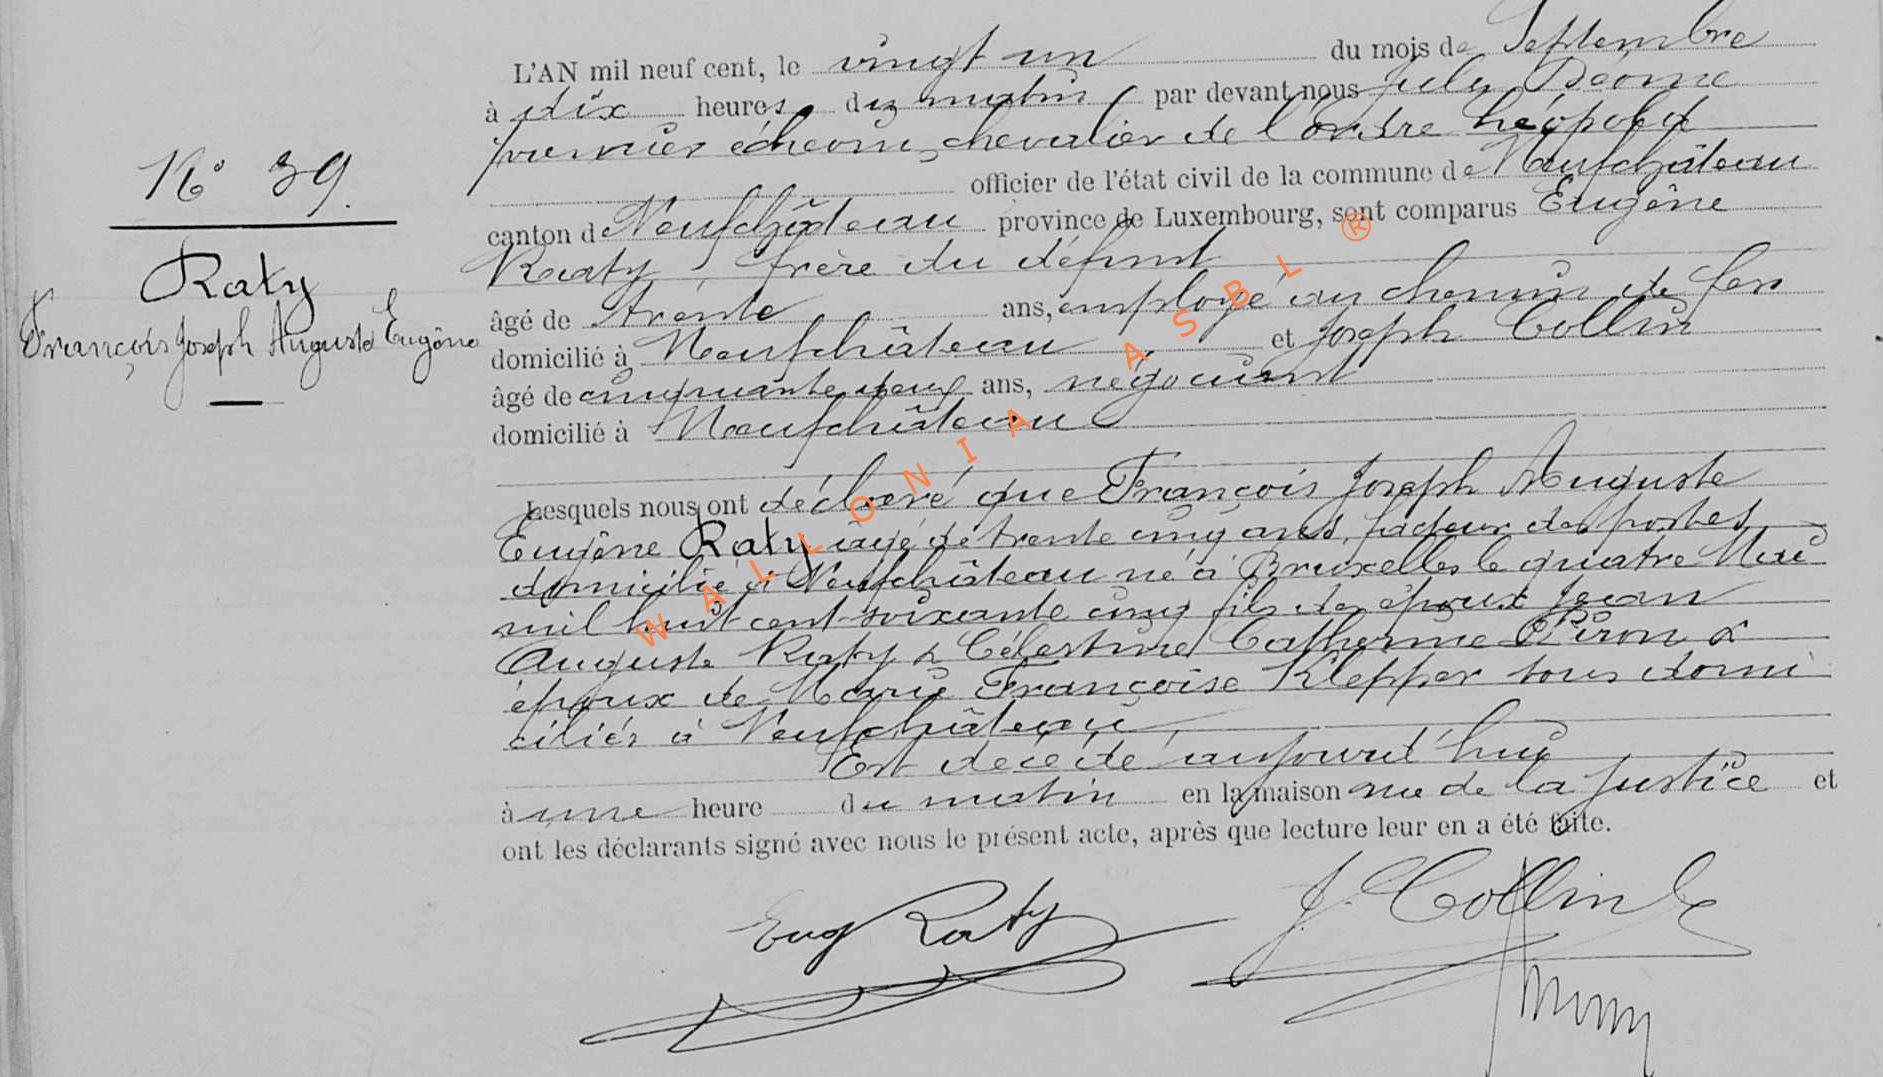 N° 39.
Raty
François Joseph Auguste Eugène
L'AN mil neuf cent, le vingt un du mois de Septembre
à dix heures du matin par devant nous Jules
premier échevin, chevalier de l'ordre Léopold
officier de l'état civil de la commune de Neufchâteau
canton de Neufchâteau province de Luxembourg, sont comparus Eugène
Raty, frère du défunt
âgé de trente ans, employé au chemin de fer
domicilié à Neufchâteau et Joseph Collin
âgé de cinquante deux ans, négociant
domicilié à Neufchâteau
Lesquels nous ont déclaré que François Joseph Auguste
Eugène Raty âgé de trente cinq ans, facteur des postes
domicilié à Neufchâteau né à Bruxelles le quatre Mai
mil huit cent soixante cinq fils des époux Jean
Auguste Raty & Célestine Catherine Piron &
époux de Marie Françoise Klepper tous domi
ciliés à Neufchâteau
Est décédé aujourd'hui
à une heure du matin en la maison rue de la Justice et
ont les déclarants signé avec nous le présent acte, après que lecture leur en a été faite.
Eug Raty
J. Collin
WALLONIA ASBL ®